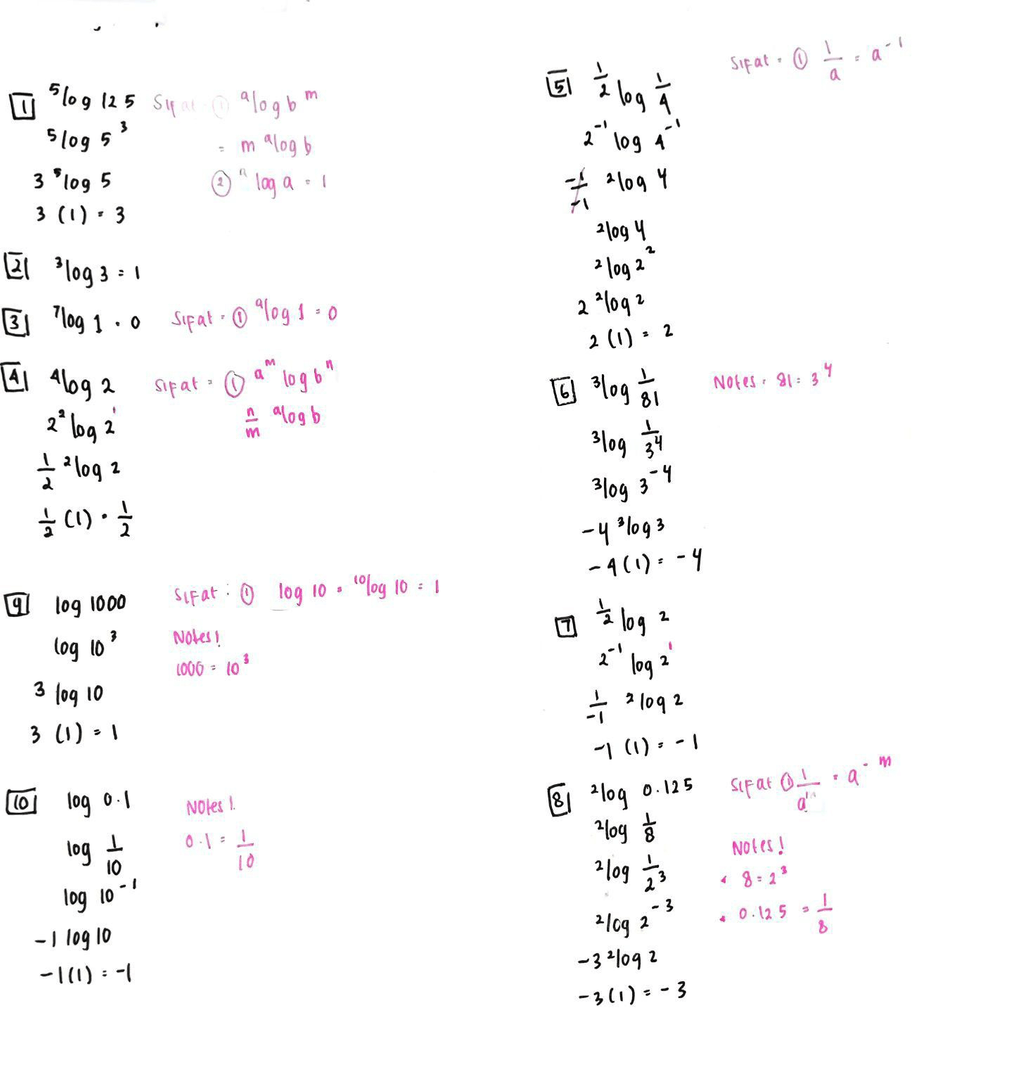 1 ⁵log 125 Sifat ① ᵃlog bᵐ
⁵log 5³ = m ᵃlog b
3 ⁵log 5 ② ᵃlog a = 1
3 (1) = 3
2 ³log 3 = 1
3 ⁷log 1 = 0 Sifat = ① ᵃlog 1 = 0
4 ⁴log 2 Sifat = ① aᵐ log bⁿ
2² log 2¹ n/m ᵃlog b
1/2 ²log 2
1/2 (1) = 1/2
9 log 1000 Sifat : ① log 10 = ¹⁰log 10 = 1
log 10³ Notes!
1000 = 10³
3 log 10
3 (1) = 1
10 log 0.1 Notes!
log 1/10 0.1 = 1/10
log 10⁻¹
-1 log 10
-1(1) = -1
5 1/2 log 1/4 Sifat = ① 1/a = a⁻¹
2⁻¹ log 4⁻¹
-1/-1 ²log 4
²log 4
²log 2²
2 ²log 2
2 (1) = 2
6 ³log 1/81 Notes = 81 = 3⁴
³log 1/3⁴
³log 3⁻⁴
-4 ³log 3
-4(1) = -4
7 1/2 log 2
2⁻¹ log 2¹
1/-1 ²log 2
-1 (1) = -1
8 ²log 0.125 Sifat ① 1/aᵐ = a⁻ᵐ
²log 1/8 Notes!
²log 1/2³ • 8 = 2³
²log 2⁻³ • 0.125 = 1/8
-3 ²log 2
-3(1) = -3